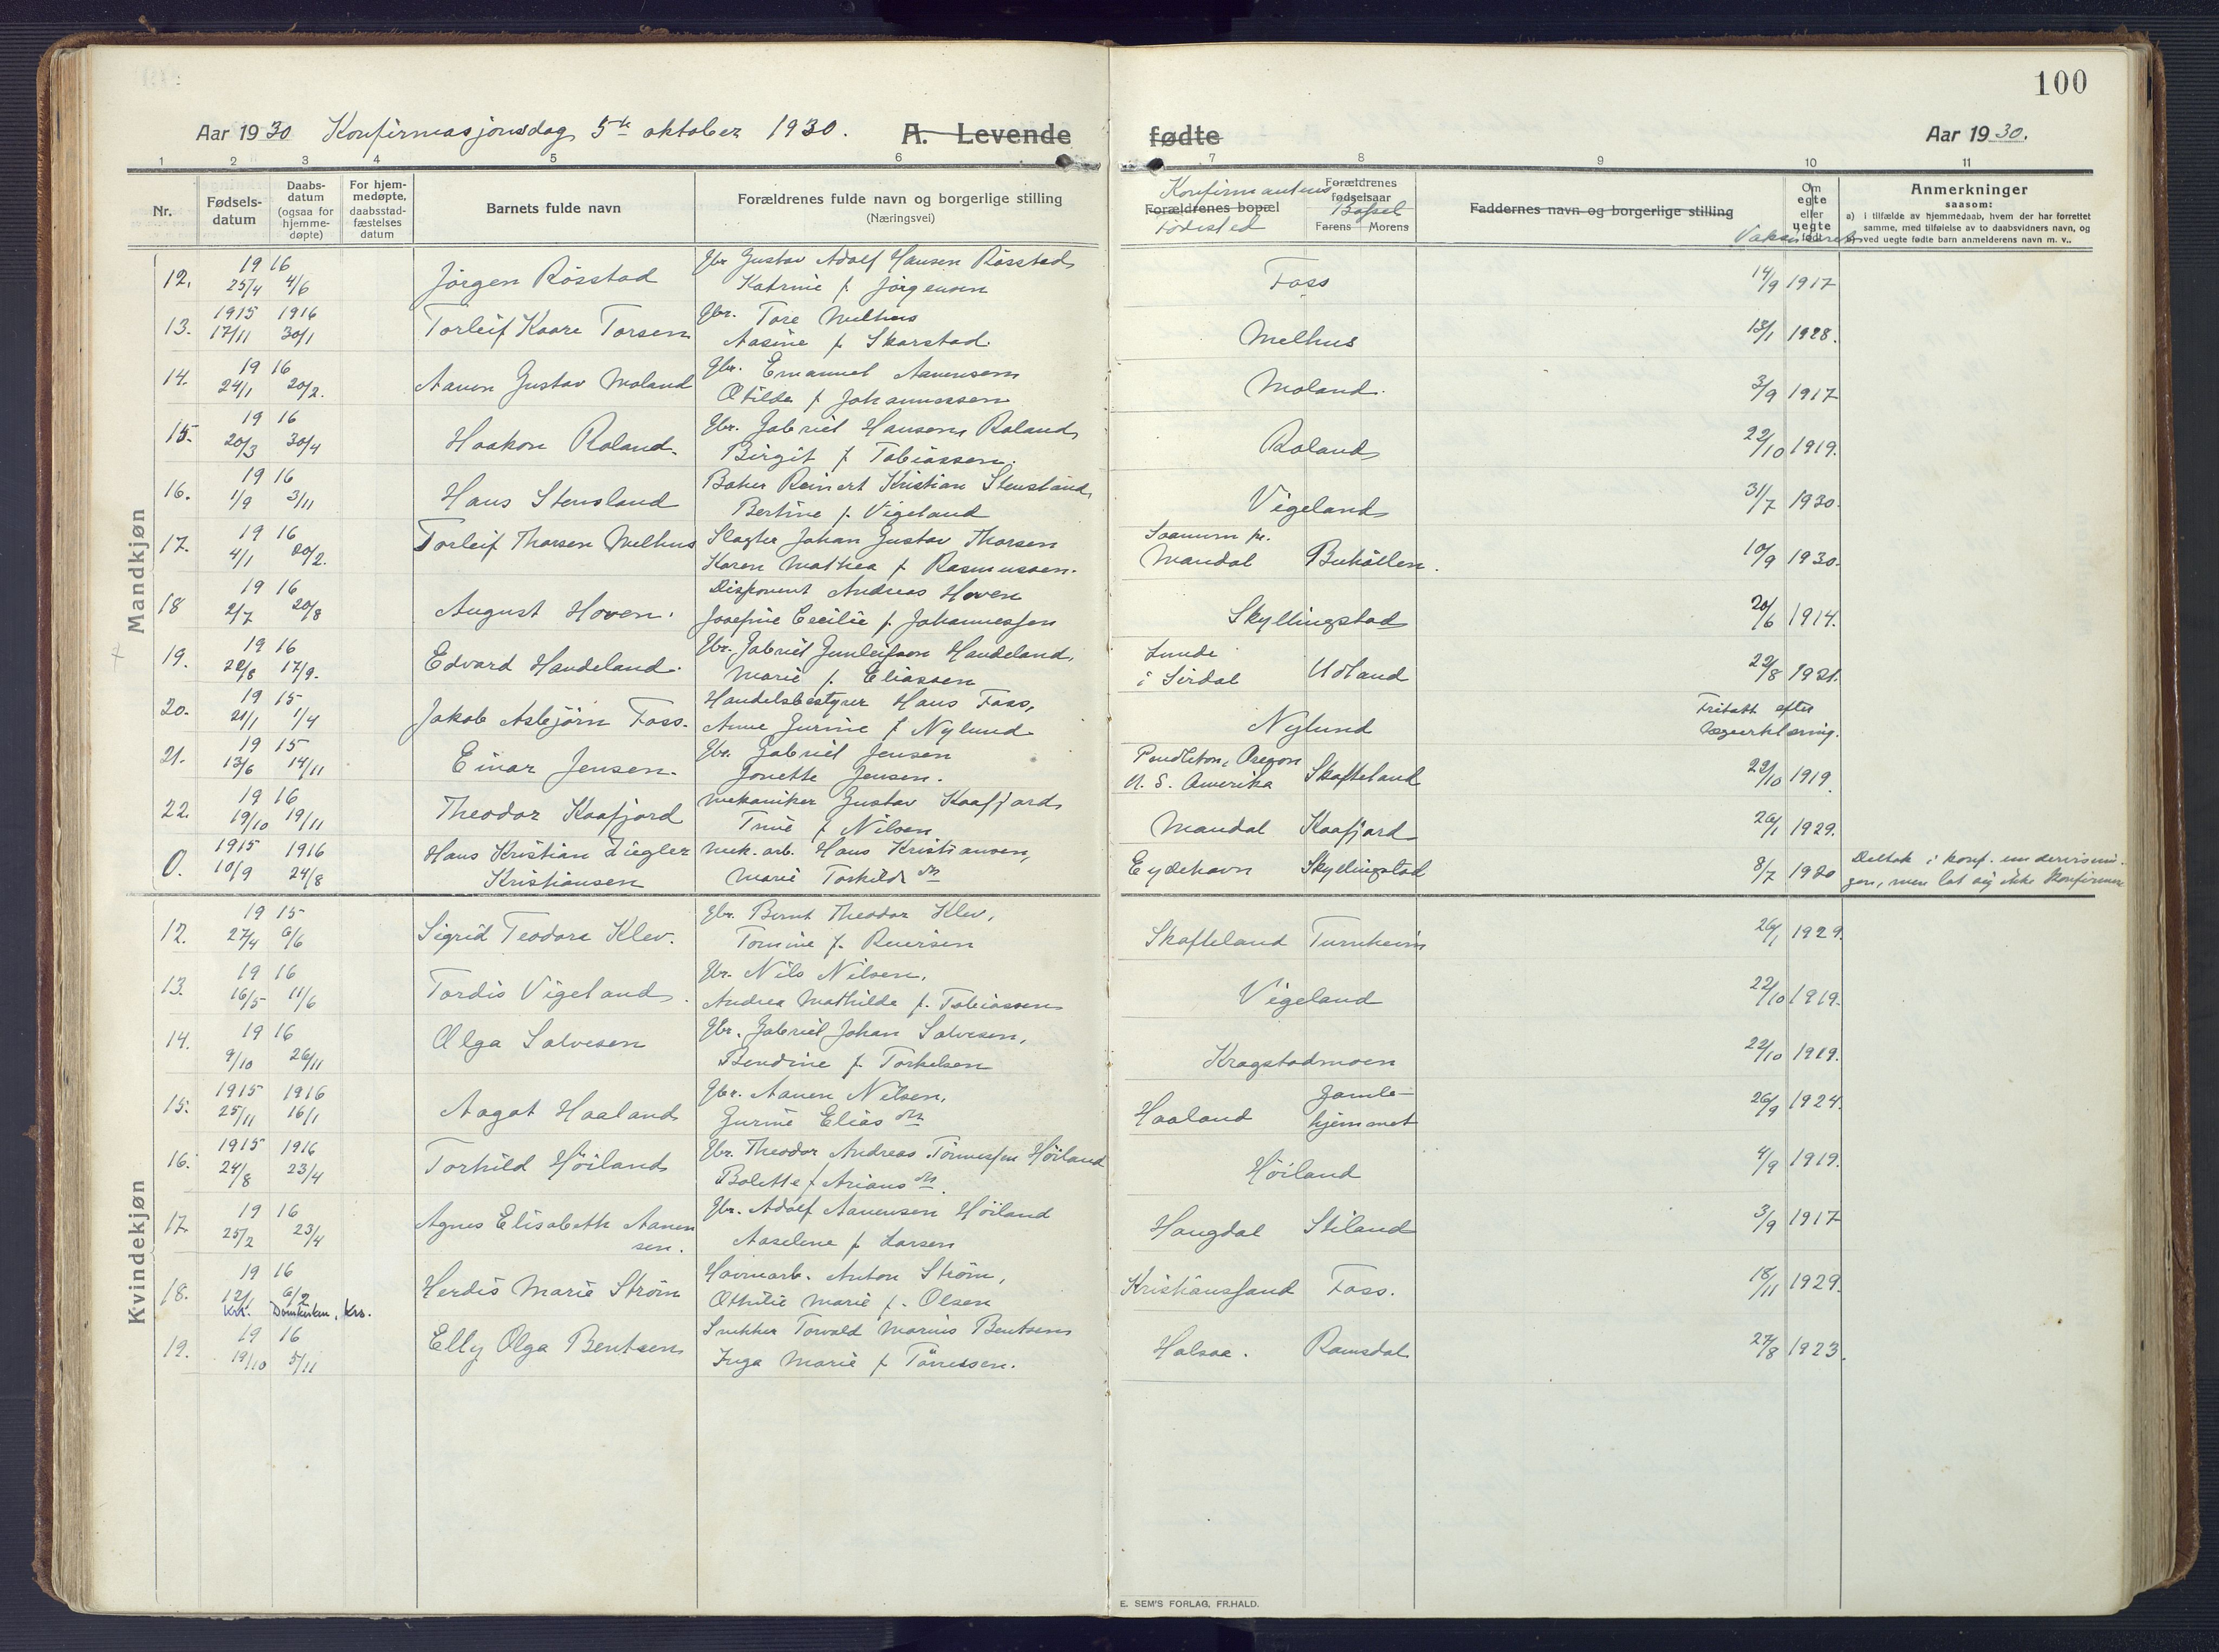 100
Aar 1930 Konfirmasjonsdag 5te oktober 1930. A. Levende fødte Aar 1930.
1 2 3 4 5 6 7 8 9 10 11
Nr. Fødsels-datum Daabs-datum (ogsaa for hjemme-døpte) For hjem-medøpte, daabsstad-fæstelses datum Barnets fulde navn Forældrenes fulde navn og borgerlige stilling (Næringsvei) Forældrenes bopæl Konfirmantens Fødested Forældrenes fødselsaar Farens Morens Bopæl Faddernes navn og borgerlige stilling Om egte eller uegte født Anmerkninger saasom:
a) i tilfælde av hjemmedaab, hvem der har forrettet samme, med tilføielse av to daabsvidners navn, og
ved uegte fødte barn anmelderens navn m. v..
Mandkjøn
12. 1916 25/4 4/6 Jörgen Rösstad Gbr Gustav Adolf Hansen Rösstad, Katrine f. Jörgensen Foss 14/9 1917
13. 1915 17/11 1916 30/1 Torleif Kaare Torsen Gbr. Tore Melhus Aasine f. Skarstad. Melhus 13/1 1928.
14. 1916 24/1 20/2. Aanen Gustav Moland Gbr. Emanuel Aanensen Otilde f. Johannessen Moland. 3/9 1917
15. 1916 20/3 30/4 Haakon Roland. Gbr. Gabriel Hansen Roland, Birgit f. Tobiassen. Roland 22/10 1919.
16. 1916 1/9 3/11 Hans Stensland Baker Reinert Kristian Stensland, Bertine f. Vigeland Vigeland 31/7 1930.
17. 1916 4/1 20/2. Torleif Thorsen Melhus Slagter Johan Gustav Thorsen Karen Mathea f. Rasmussen. Soanum pr. Mandal Buhöllen. 10/9 1930.
18 1916 2/7 20/8 August Hoven. Disponent Andreas Hoven Josefine Cecilie f. Johannessen Skyllingstad 20/6 1914.
19. 1916 22/8 17/9. Edvard Haudeland. Gbr. Gabriel Gunleifsen Haudeland, Marie f. Eliassen Lunde i Sirdal Udland 22/8 1921.
20. 1915 21/1 1/4 Jakob Asbjörn Foss. Handelsbestyrer Hans Foss, Anne Gurine f Nylund. Nylund Fritatt efter lægeerklæring.
21. 1915 13/6 14/11 Einar Jensen. Gbr. Gabriel Jensen Jonette Jensen. Pendleton, Oregon U. S. Amerika Skofteland 22/10 1919.
22. 1916 19/10 19/11 Theodor Kaafjord Mekaniker Gustav Kaafjord, Trine f Nilsen Mandal Kaafjord 26/1 1929.
0. 1915 10/9 1916 24/8 Hans Kristian Ziegler Kristiansen Mek. arb. Hans Kristiansen, Marie Torkilds dtr Eydehavn Skyllingstad 8/7 1920 Deltok i konf. undervisnin-gen, men lot sig ikke konfirmere
Kvindekjøn
12. 1915 27/4 6/6 Sigrid Teodora Klev. Gbr. Bernt Theodor Klev, Tomine f. Reiersen Skofteland Turnheim 26/1 1929.
13. 1916 16/5 11/6 Tordis Vigeland. Gbr. Nils Nilsen, Andrea Mathilde f. Tobiassen Vigeland 22/10 1919.
14. 1916 9/10 26/11 Olga Salvesen Gbr. Gabriel Johan Salvesen, Bendine f. Torkelsen Kragstadmoen 22/10 1919.
15. 1915 25/11 1916 16/1 Aagot Haaland Gbr. Aanen Nilsen, Gurine Elias dtr Haaland Gamle-hjemmet 26/9 1924.
16. 1915 24/8 1916 23/4 Torhild Höiland Gbr. Theodor Andreas Tönnessen Höiland Bolette f Arians dtr. Höiland 4/9 1919.
17. 1916 25/2 23/4 Agnes Elisabeth Aanensen. Gbr. Adolf Aanensen Höiland Aaselene f. Larsen Haugdal Stiland 3/9 1917
18. 1916 12/1 6/2 Krs. Domkirken, Krs. Herdis Marie Ström Havnearb. Anton Ström, Othilie Marie f. Olsen Kristianssand Foss. 18/11 1929.
19. 1916 19/10 5/11 Elly Olga Bentsen Snekker Torvald Marius Bentsen Inga Marie f Tönnessen. Halsaa. Ramsdal 27/8 1923.
E. SEM'S FORLAG, FR.HALD.